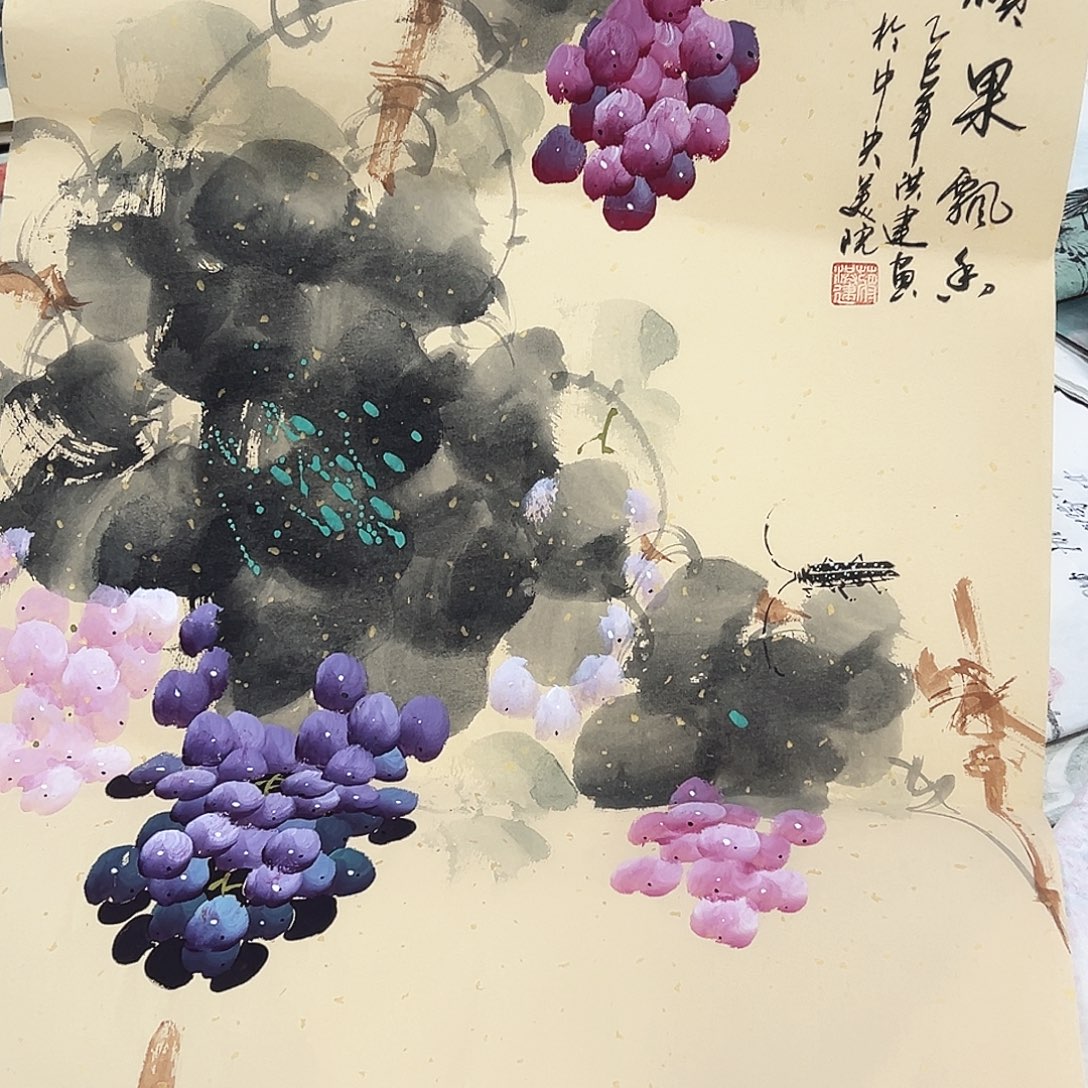 硕果飘香
乙巳年洪建画
於中央美院